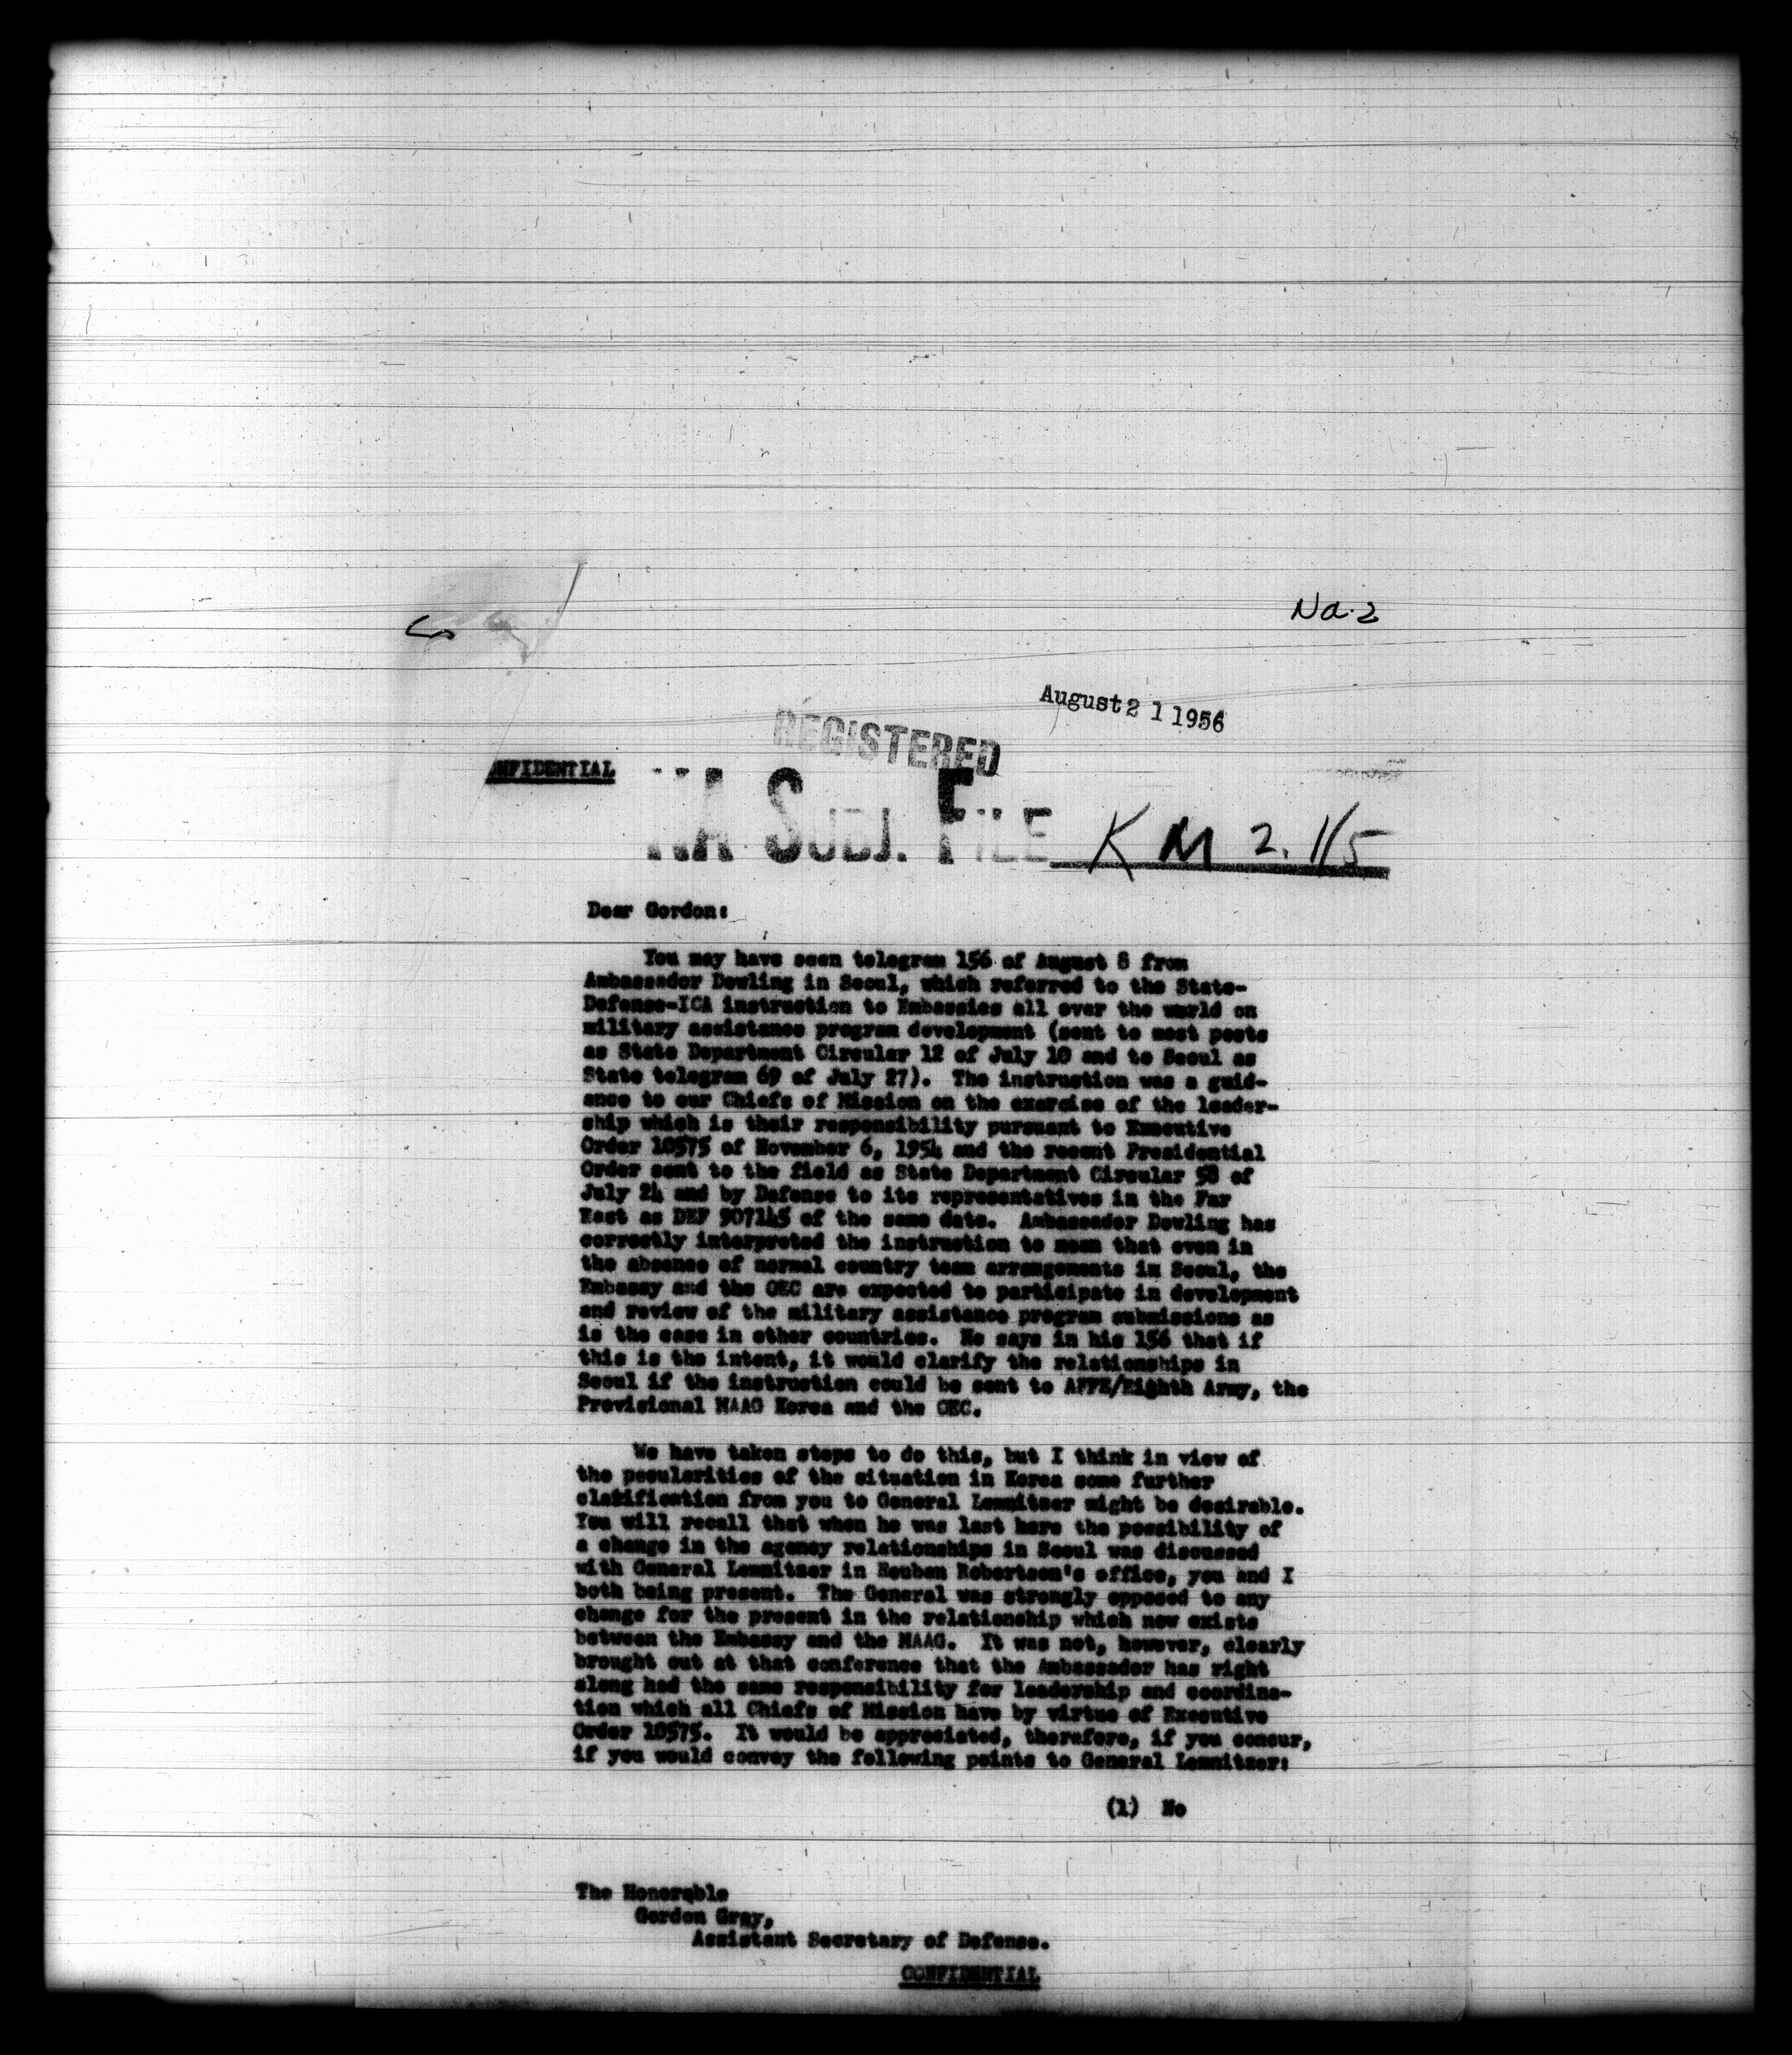 Na.2
August 21 1956
REGISTERED
CONFIDENTIAL
NA SUBJ. FILE KM 2.1/5
Dear Gordon:
You may have seen telegram 156 of August 8 from
Ambassador Dowling in Seoul, which referred to the State-
Defense-ICA instruction to Embassies all over the world on
military assistance program development (sent to most posts
as State Department Circular 12 of July 10 and to Seoul as
State telegram 69 of July 27). The instruction was a guid-
ance to our Chiefs of Mission on the exercise of the leader-
ship which is their responsibility pursuant to Executive
Order 10575 of November 6, 1954 and the recent Presidential
Order sent to the field as State Department Circular 58 of
July 24 and by Defense to its representatives in the Far
East as DEF 907145 of the same date. Ambassador Dowling has
correctly interpreted the instruction to mean that even in
the absence of normal country team arrangements in Seoul, the
Embassy and the OEC are expected to participate in development
and review of the military assistance program submissions as
is the case in other countries. He says in his 156 that if
this is the intent, it would clarify the relationships in
Seoul if the instruction could be sent to AFFE/Eighth Army, the
Provisional MAAG Korea and the OEC.
We have taken steps to do this, but I think in view of
the peculiarities of the situation in Korea some further
clarification from you to General Lemnitzer might be desirable.
You will recall that when he was last here the possibility of
a change in the agency relationships in Seoul was discussed
with General Lemnitzer in Reuben Robertson's office, you and I
both being present. The General was strongly opposed to any
change for the present in the relationship which now exists
between the Embassy and the MAAG. It was not, however, clearly
brought out at that conference that the Ambassador has right
along had the same responsibility for leadership and coordina-
tion which all Chiefs of Mission have by virtue of Executive
Order 10575. It would be appreciated, therefore, if you concur,
if you would convey the following points to General Lemnitzer:
(1) No
The Honorable
Gordon Gray,
Assistant Secretary of Defense.
CONFIDENTIAL